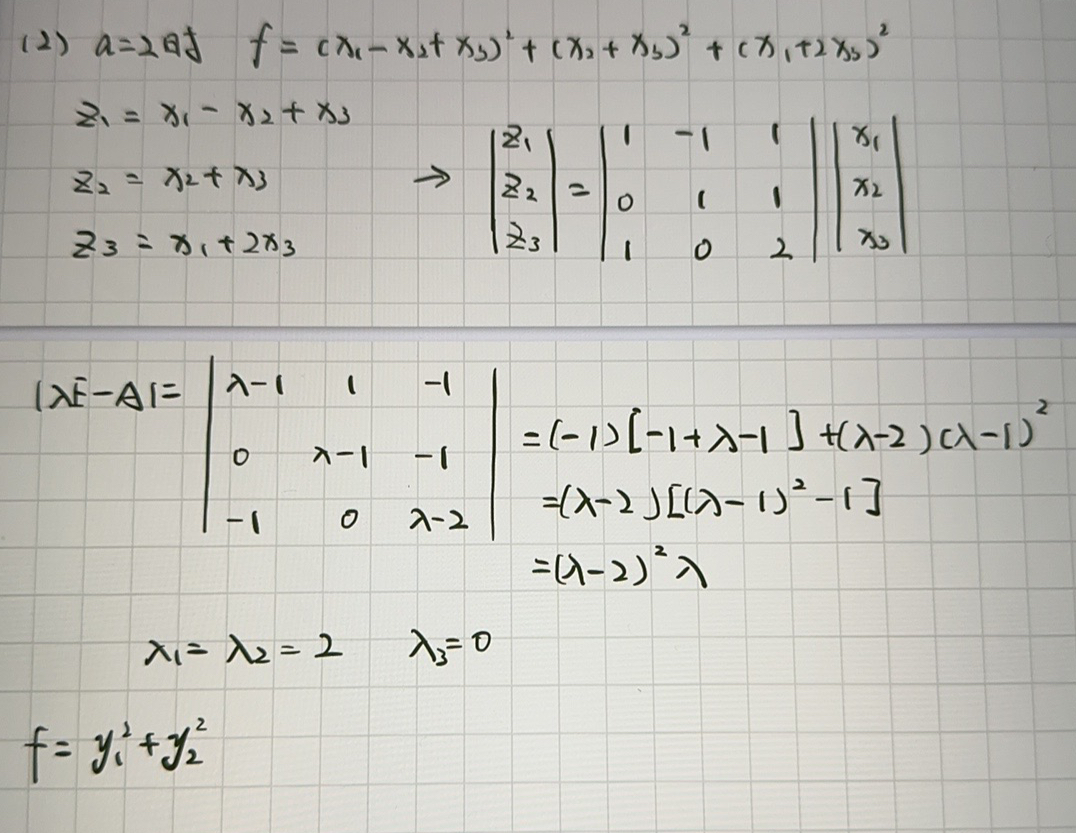 (2) a=2时 f = (x₁ - x₂ + x₃)² + (x₂ + x₃)² + (x₁+2x₃)²
z₁ = x₁ - x₂ + x₃
z₂ = x₂ + x₃
z₃ = x₁ + 2x₃
→ |z₁| = |1 -1 1| |x₁|
|z₂| |0 1 1| |x₂|
|z₃| |1 0 2| |x₃|
|λE-A| = |λ-1 1 -1|
|0 λ-1 -1|
|-1 0 λ-2|
= (-1)[-1+λ-1] + (λ-2)(λ-1)²
= (λ-2)[(λ-1)² - 1]
= (λ-2)² λ
λ₁ = λ₂ = 2 λ₃ = 0
f = y₁² + y₂²